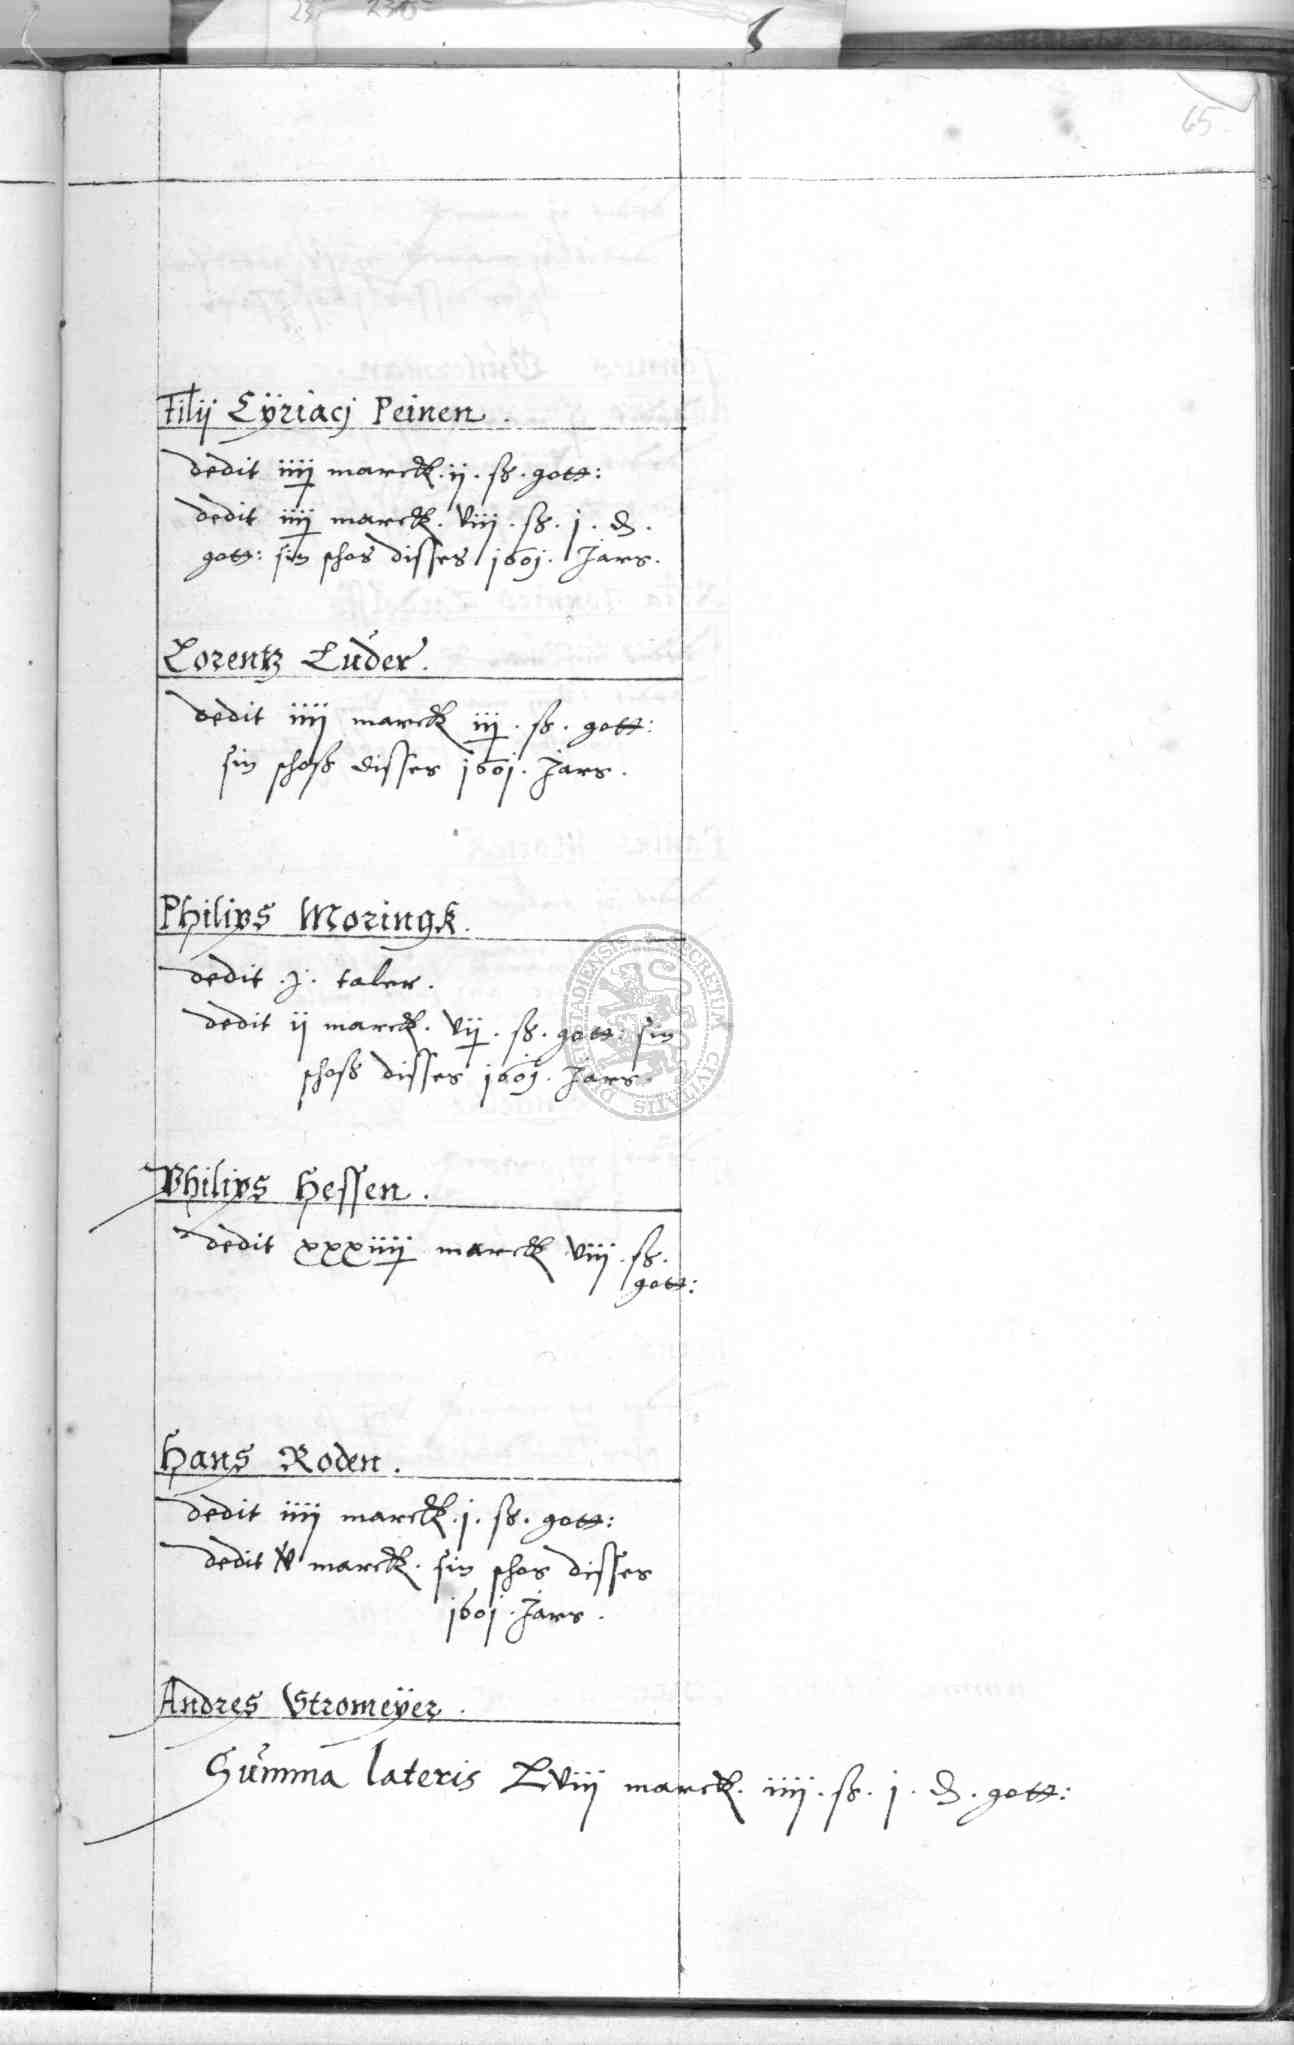 65
Filij Cÿriacj Peinen.
dedit iiij marck. ij. ß. gott:
dedit iiij marck. viij. ß. j. d.
gott: sin schos disses 1601. Jars.
Lorentz Luder.
dedit iiij marck iij. ß. gott:
sin schoß disses 1601. Jars.
Philips Moringk.
dedit .j. taler.
dedit ij marck. vij. ß. gott: sin
schoß disses 1601. Jars.
Philips Hessen.
dedit xxxiiij marck viij. ß.
gott:
Hans Roden.
dedit iiij marck. j. ß. gott:
dedit v marck. sin schos disses
1601. Jars.
Andres Stromeÿer.
Summa lateris Lviij marck. iiij. ß. j. d. gott: